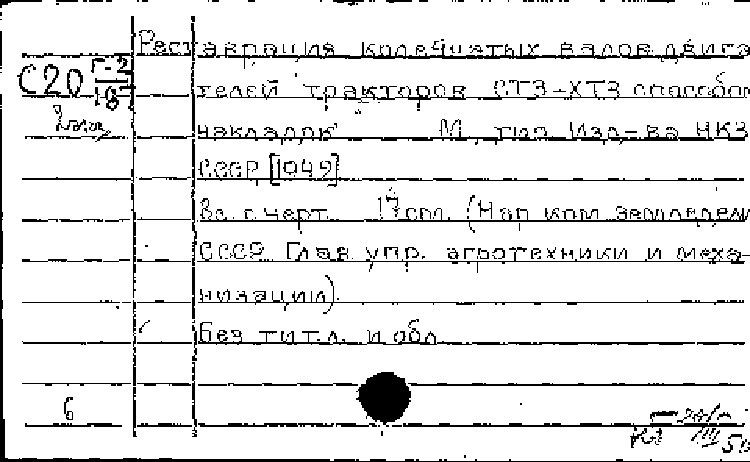 Реставрация коленчатых валов двига
С20 Г-2
187
телей тракторов СТЗ-ХТЗ способом
2 экз
накладок М, тип Изд-ва НКЗ
СССР [1942]
8с. с черт. 17см. (Нар ком земледел
СССР. Глав упр. агротехники и меха-
низации).
Без тит.л. и обл
6
50